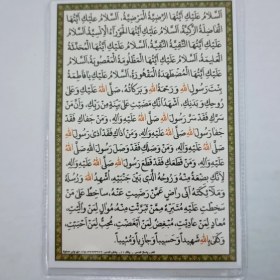 اَلسَّلامُ عَلَيْكِ اَيَّتُهَا الرَّضِيَّةُ الْمَرْضِيَّةُ، اَلسَّلامُ عَلَيْكِ اَيَّتُهَا
الْفاضِلَةُ الزَّكِيَّةُ، اَلسَّلامُ عَلَيْكِ اَيَّتُهَا الْحَوْرآءُ الْاِنْسِيَّةُ، اَلسَّلامُ
عَلَيْكِ اَيَّتُهَا التَّقِيَّةُ النَّقِيَّةُ، اَلسَّلامُ عَلَيْكِ اَيَّتُهَا الْمُحَدَّثَةُ
الْعَليمَةُ، اَلسَّلامُ عَلَيْكِ اَيَّتُهَا الْمَظْلُومَةُ الْمَغْصُوبَةُ، اَلسَّلامُ
عَلَيْكِ اَيَّتُهَا الْمُضْطَهَدَةُ الْمَقْهُورَةُ، اَلسَّلامُ عَلَيْكِ يا فاطِمَةُ
بِنْتَ رَسُولِ اللهِ وَرَحْمَةُ اللهِ وَبَرَكاتُهُ، صَلَّى اللهُ عَلَيْكِ وَعَلى
رُوحِكِ وَبَدَنِكِ، اَشْهَدُ اَنَّكِ مَضَيْتِ عَلى بَيِّنَةٍ مِنْ رَبِّكِ، وَاَنَّ مَنْ
سَرَّكِ فَقَدْ سَرَّ رَسُولَ اللهِ صَلَّى اللهُ عَلَيْهِ وَآلِهِ، وَمَنْ جَفاكِ فَقَدْ
جَفا رَسُولَ اللهِ صَلَّى اللهُ عَلَيْهِ وَآلِهِ، وَمَنْ آذاكِ فَقَدْ آذى رَسُولَ
اللهِ صَلَّى اللهُ عَلَيْهِ وَآلِهِ، وَمَنْ وَصَلَكِ فَقَدْ وَصَلَ رَسُولَ اللهِ صَلَّى
اللهُ عَلَيْهِ وَآلِهِ، وَمَنْ قَطَعَكِ فَقَدْ قَطَعَ رَسُولَ اللهِ صَلَّى اللهُ عَلَيْهِ وَآلِهِ
لِاَنَّكِ بِضْعَةٌ مِنْهُ وَرُوحُهُ الَّذى بَيْنَ جَنْبَيْهِ، اُشْهِدُ اللهَ وَرُسُلَهُ
وَمَلآئِكَتَهُ اَنّى راضٍ عَمَّنْ رَضيتِ عَنْهُ، ساخِطٌ عَلى مَنْ
سَخِطْتِ عَلَيْهِ، مُتَبَرِّئٌ مِمَّنْ تَبَرَّئْتِ مِنْهُ، مُوالٍ لِمَنْ والَيْتِ،
مُعادٍ لِمَنْ عادَيْتِ، مُبْغِضٌ لِمَنْ اَبْغَضْتِ، مُحِبٌّ لِمَنْ اَحْبَبْتِ،
وَكَفى بِاللهِ شَهيداً وَحَسيباً وَجازِياً وَمُثيباً.